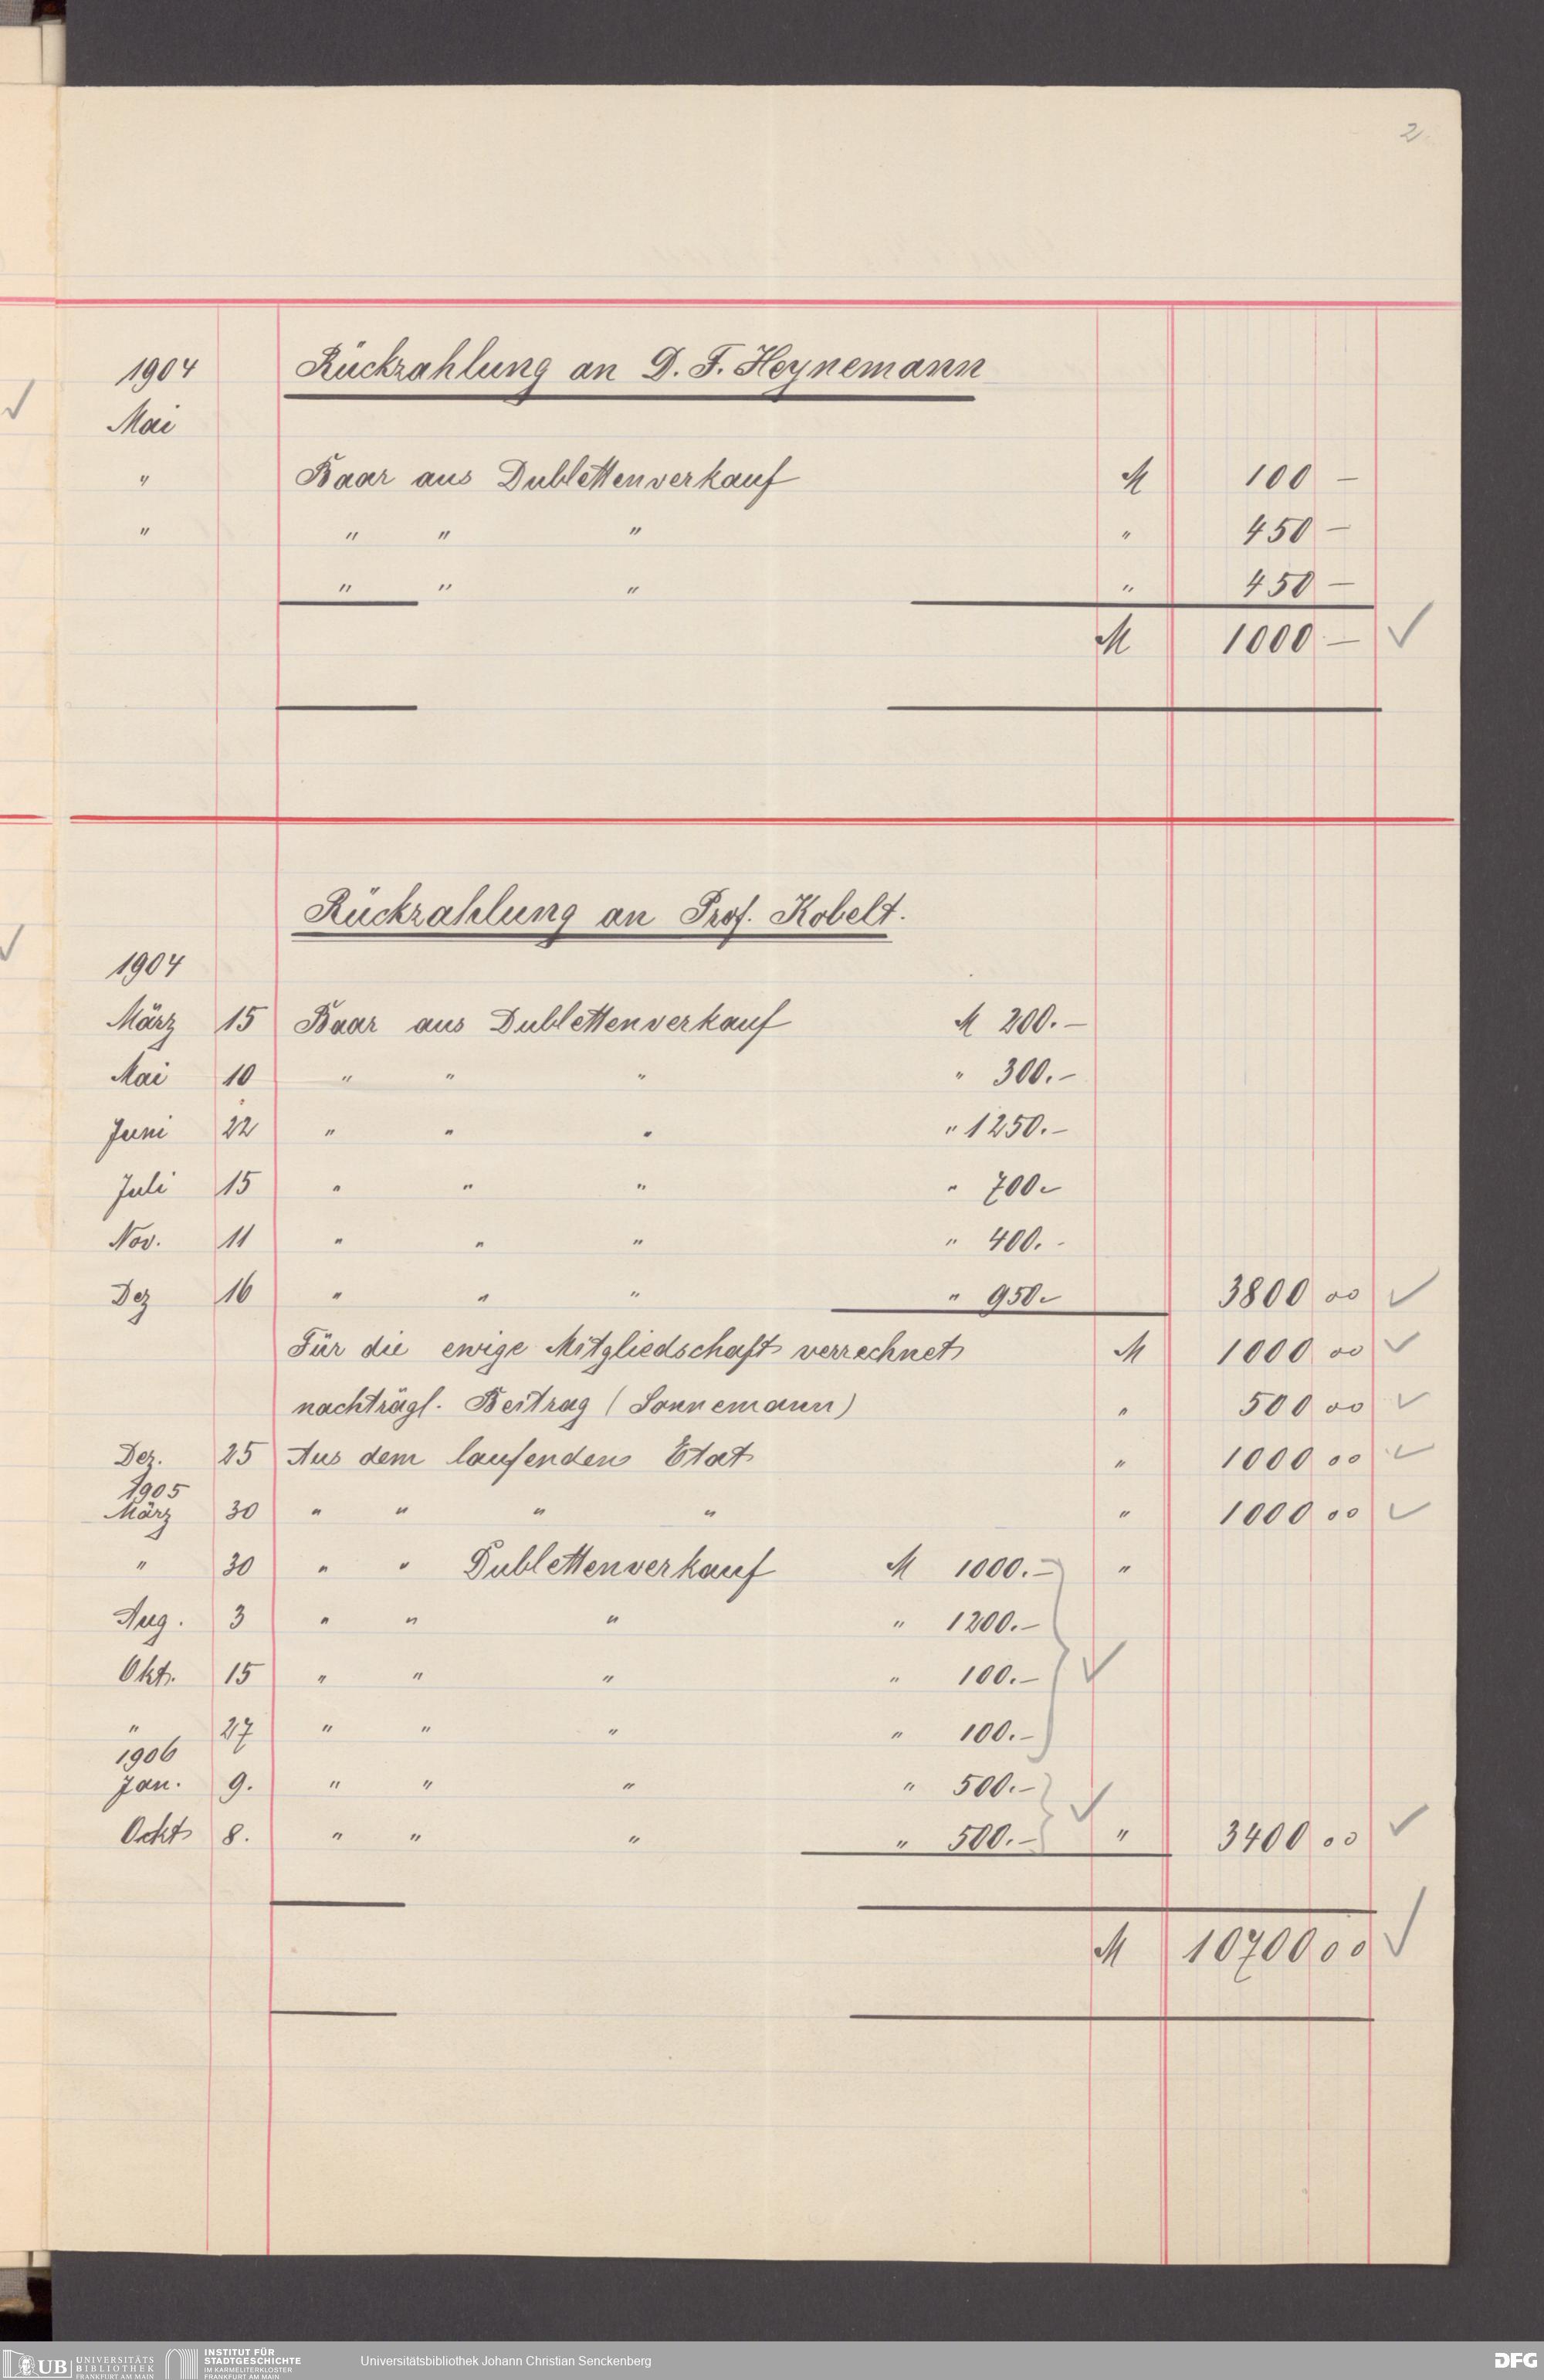 2.
1904 Rückzahlung an D. F. Heynemann
Mai
" Baar aus Dublettenverkauf M 100 —
" " " " " 450 —
" " " " 450 —
M 1000 —
Rückzahlung an Prof. Kobelt.
1904
März 15 Baar aus Dublettenverkauf M 200.—
Mai 10 " " " " 300.—
Juni 22 " " " " 1250.—
Juli 15 " " " " 700.—
Nov. 11 " " " " 400.-
Dez 16 " " " " 950.— 3800 00
Für die ewige Mitgliedschaft verrechnet M 1000 00
nachträgl. Beitrag (Sonnemann) " 500 00
Dez. 25 Aus dem laufenden Etat " 1000 00
1905
März 30 " " " " " 1000 00
" 30 " " Dublettenverkauf M 1000.— "
Aug. 3 " " " " 1200.—
Okt. 15 " " " " 100.—
" 27 " " " " 100.—
1906
Jan. 9. " " " " 500.—
Ockt 8. " " " " 500.— " 3400 00
M 10700 00
UB UNIVERSITÄTS
BIBLIOTHEK
FRANKFURT AM MAIN
INSTITUT FÜR
STADTGESCHICHTE
IM KARMELITERKLOSTER
FRANKFURT AM MAIN
Universitätsbibliothek Johann Christian Senckenberg
DFG